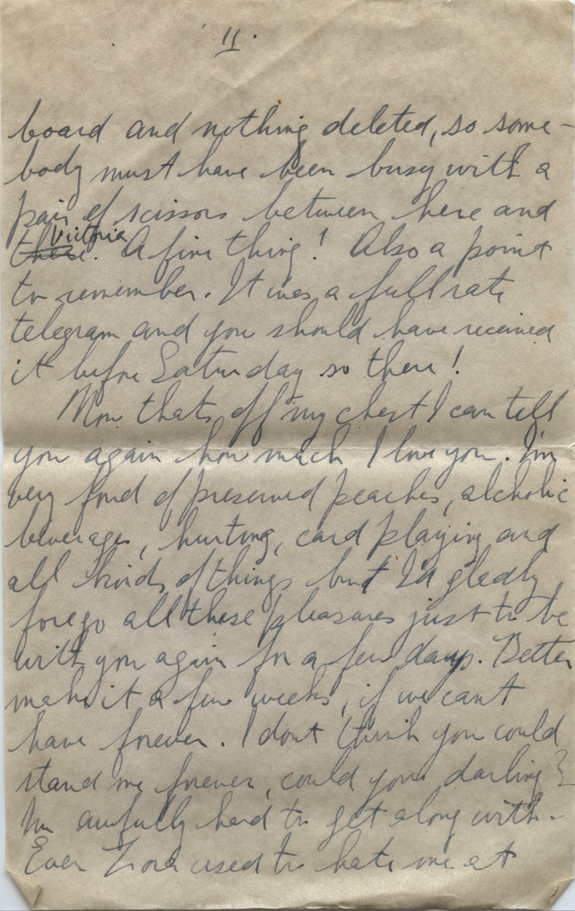 11.
board and nothing deleted, so some-
body must have been busy with a
pair of scissors between here and
there. Victoria A fine thing! Also a point
to remember. It was a full rate
telegram and you should have received
it before Saturday so there!
Now thats off my chest I can tell
you again how much I love you. I'm
very fond of preserved peaches, alcholic
beverages, hunting, card playing and
all kinds of things but I'd gladly
forego all these pleasures just to be
with you again for a few days. Better
make it a few weeks, if we can't
have forever. I dont think you could
stand me forever, could you darling?
Im awfully hard to get along with.
Even used to hate me at